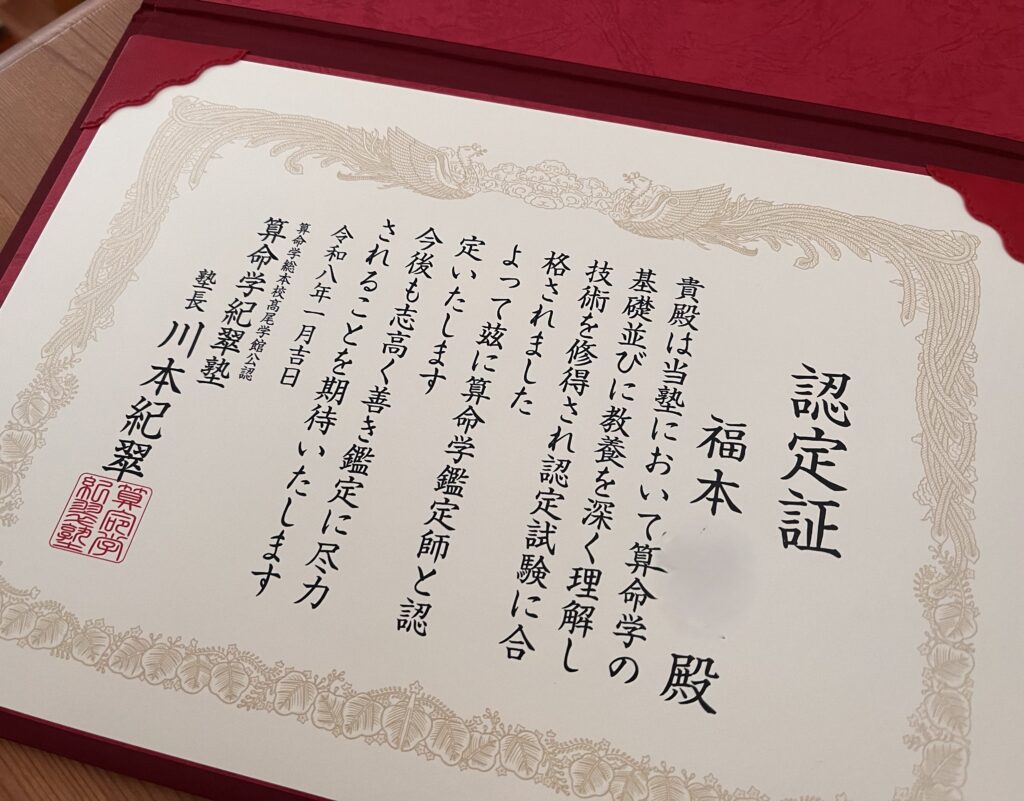 認定証
福本 殿
貴殿は当塾において算命学の
基礎並びに教養を深く理解し
技術を修得され認定試験に合
格されました
よって茲に算命学鑑定師と認
定いたします
今後も志高く善き鑑定に尽力
されることを期待いたします
令和八年一月吉日
算命学総本校高尾学館公認
算命学紀翠塾
塾長 川本紀翠
算命学
紀翠塾